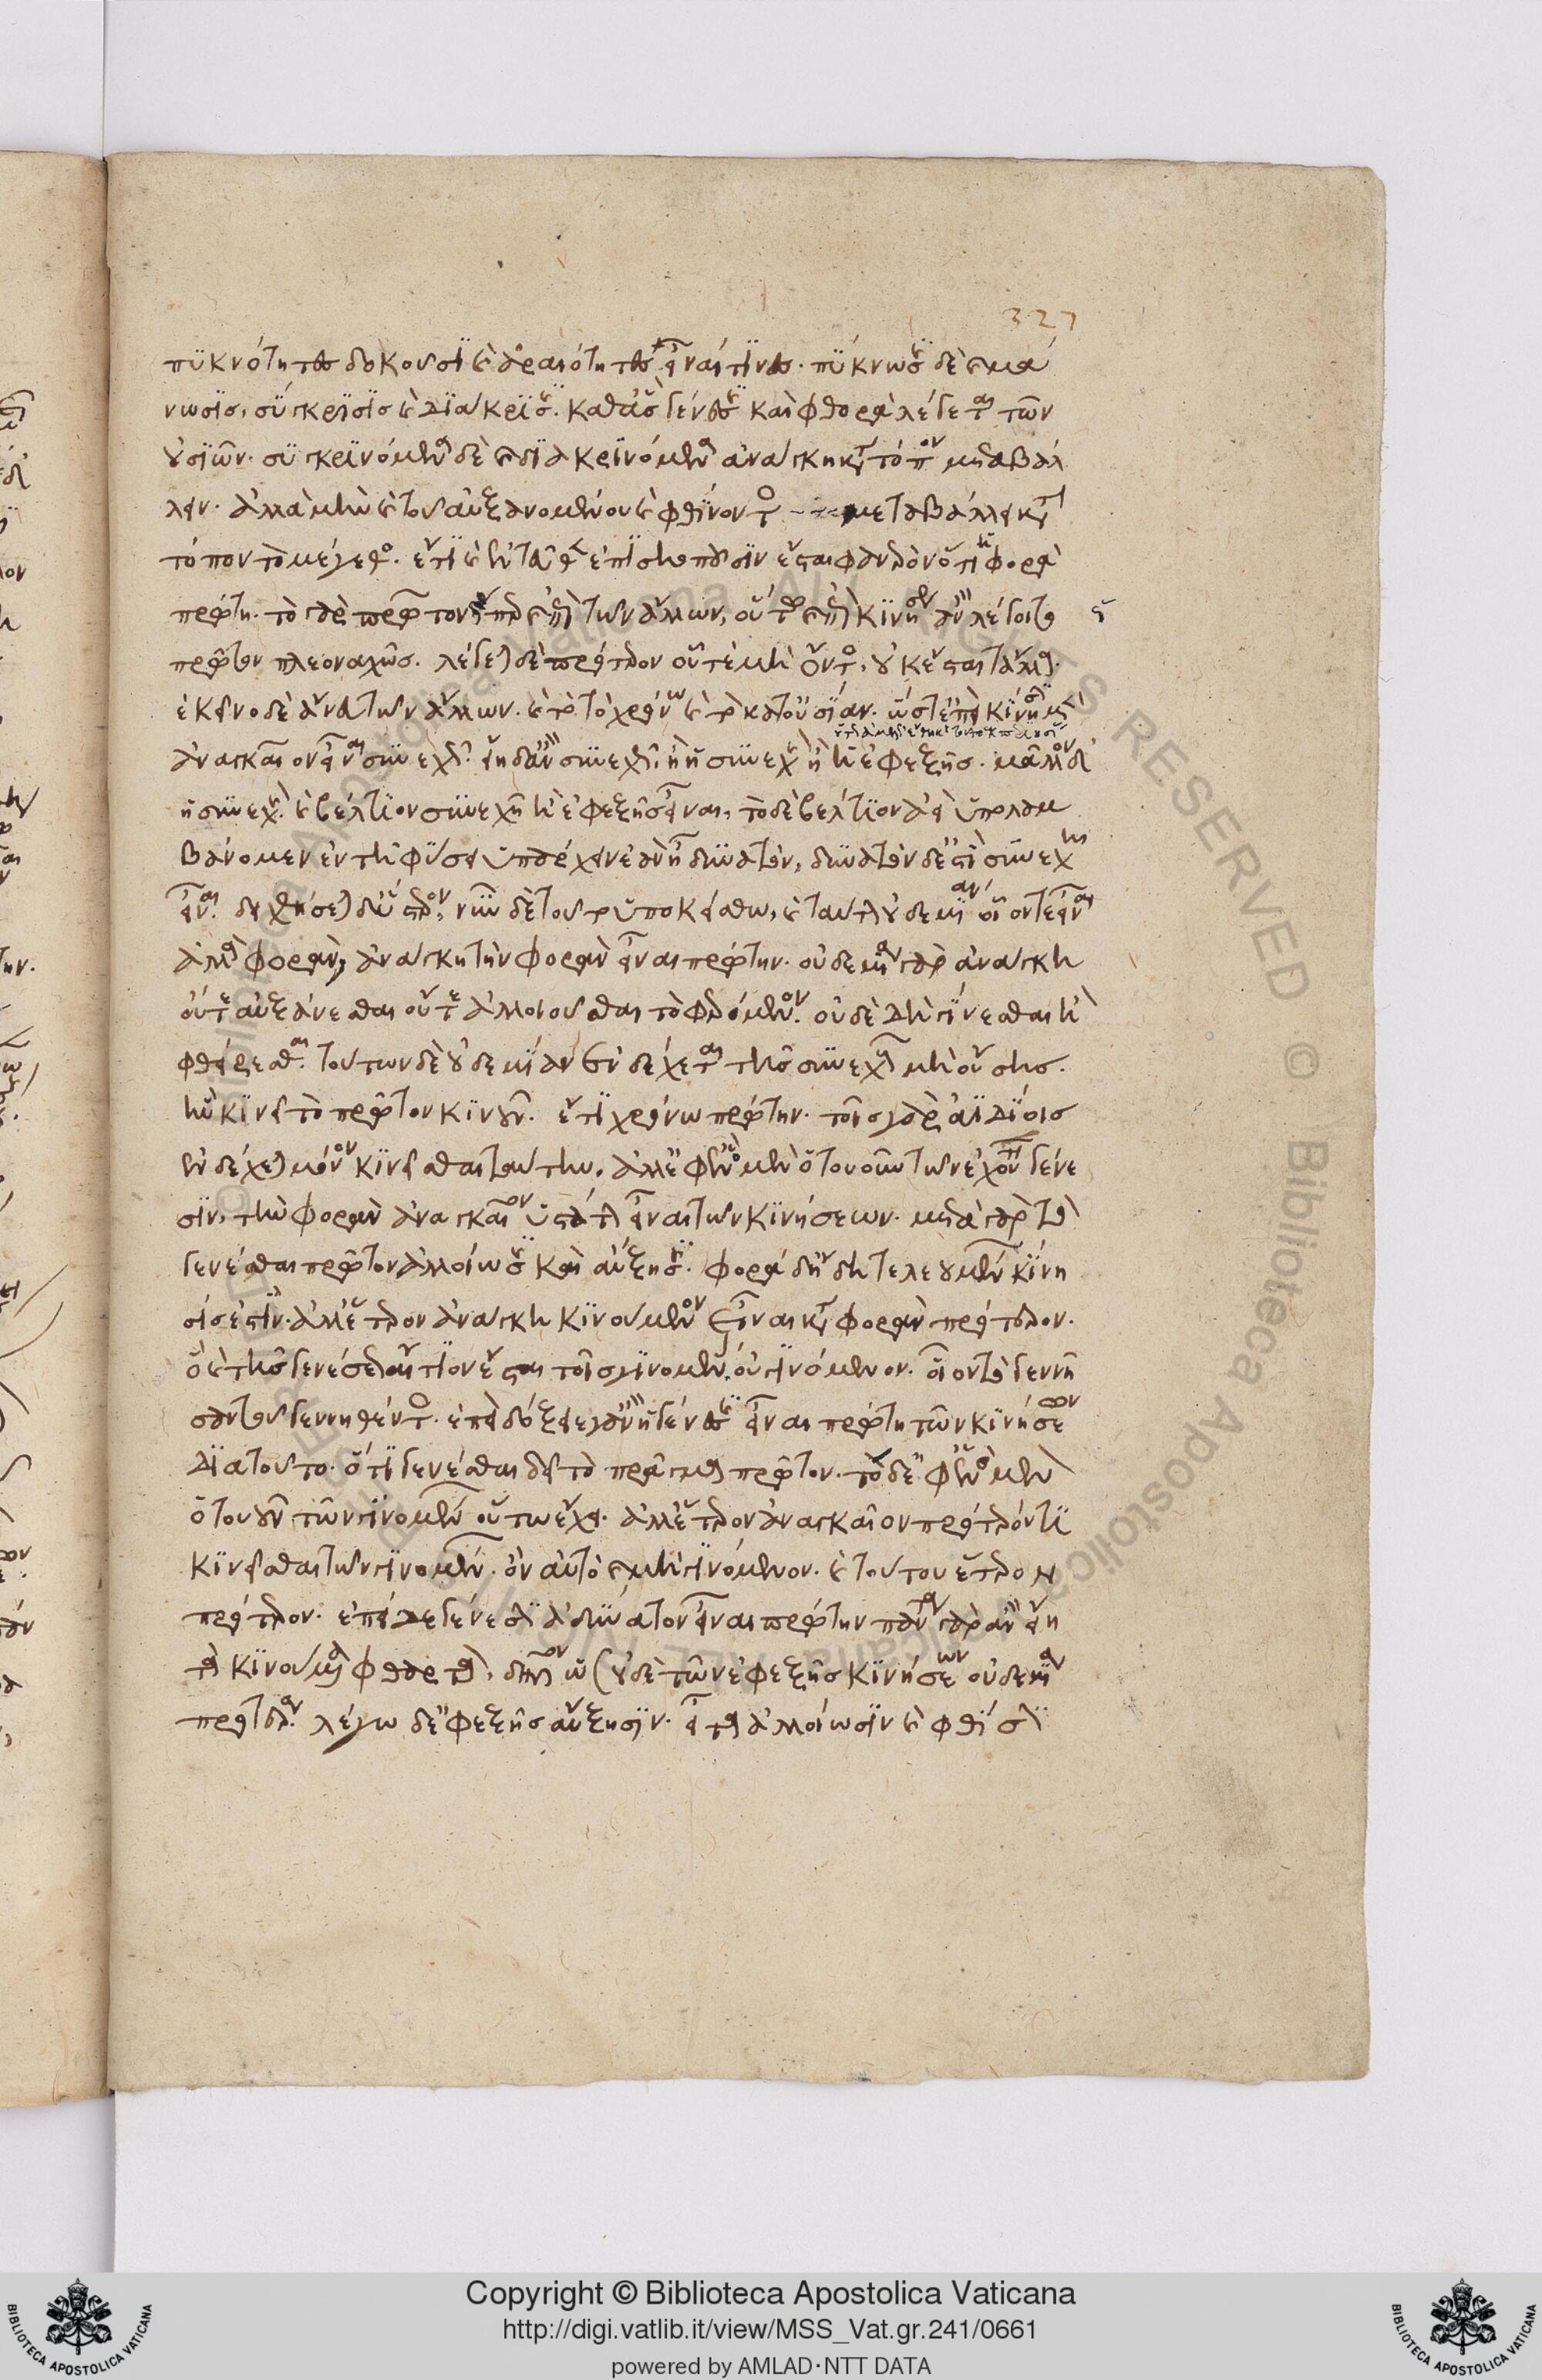 πυκνότητος δοκοῦσι καὶ ἀραιότητος εἶναί τινες. πύκνωσις δὲ καὶ μά
νωσις, σύγκρισις καὶ διάκρισις. καθ' ἃς γένεσις καὶ φθορὰ λέγεται τῶν
οὐσιῶν. συγκρινόμενα δὲ καὶ διακρινόμενα ἀνάγκη κατὰ τόπον μεταβάλ
λειν. ἀλλὰ μὴν καὶ τοῦ αὐξανομένου καὶ φθίνοντος μεταβάλλει κατὰ
τόπον τὸ μέγεθος. ἔτι καὶ ἐντεῦθεν ἐπισκοποῦσιν ἔσται φανερὸν ὅτι ἡ φορὰ
πρώτη. τὸ γὰρ πρῶτον ὥσπερ καὶ ἐπὶ τῶν ἄλλων, οὕτω καὶ ἐπὶ κινήσεως ἂν λέγοιτο
πρῶτον πλεοναχῶς. λέγεται δὲ πρότερον οὗ τε μὴ ὄντος, οὐκ ἔσται τἆλλα.
ἐκεῖνο δὲ ἄνευ τῶν ἄλλων. καὶ τὸ τῷ χρόνῳ καὶ τὸ κατ' οὐσίαν. ὥστ' ἐπεὶ κίνησιν μὲν
ἀναγκαῖον εἶναι συνεχῶς. εἴη δ' ἂν συνεχῶς, ἢ ἡ συνεχὴς ἢ ἡ ἐφεξῆς. μᾶλλον δ'
ἡ συνεχής. καὶ βέλτιον συνεχῆ ἢ ἐφεξῆς εἶναι, τὸ δὲ βέλτιον ἀεὶ ὑπολαμ
βάνομεν ἐν τῇ φύσει ὑπάρχειν ἐὰν ᾖ δυνατόν, δυνατὸν δ' ἐστὶ συνεχῆ
εἶναι. δειχθήσεται δ' ὕστερον, νῦν δὲ τοῦτο ὑποκείσθω, καὶ ταύτην οὐδεμίαν οἷόν τε εἶναι
ἀλλ' ἢ φοράν, ἀνάγκη τὴν φορὰν εἶναι πρώτην. οὐδεμία γὰρ ἀνάγκη
οὔτε αὐξάνεσθαι οὔτε ἀλλοιοῦσθαι τὸ φερόμενον. οὐδὲ δὴ γίνεσθαι ἢ
φθείρεσθαι. τούτων δὲ οὐδεμίαν ἐνδέχεται τῆς συνεχοῦς μὴ οὔσης.
ἣν κινεῖ τὸ πρῶτον κινοῦν. ἔτι χρόνῳ πρώτην. τοῖς γὰρ ἀϊδίοις
ἐνδέχεται μόνον κινεῖσθαι ταύτην. ἀλλ' ἐφ' ἑνὸς μὲν ὁτουοῦν τῶν ἐχόντων γένε
σιν, τὴν φορὰν ἀναγκαῖον ὑστάτην εἶναι τῶν κινήσεων. μετὰ γὰρ τὸ
γενέσθαι πρῶτον ἀλλοίωσις καὶ αὔξησις. φορὰ δ' ἤδη τελειουμένων κίνη
σίς ἐστιν. ἀλλ' ἕτερον ἀνάγκη κινούμενον εἶναι κατὰ φορὰν πρότερον.
ὃ καὶ τῆς γενέσεως αἴτιον ἔσται τοῖς γινομένοις, οὐ γινόμενον. οἷον τὸ γεννῆ
σαν τοῦ γεννηθέντος. ἐπεὶ δόξειέ γ' ἂν ἡ γένεσις εἶναι πρώτη τῶν κινήσεων
διὰ τοῦτο. ὅτι γενέσθαι δεῖ τὸ πρᾶγμα πρῶτον. τὸ δ' ἐφ' ἑνὸς μὲν
ὁτουοῦν τῶν γινομένων οὕτως ἔχει. ἀλλ' ἕτερον ἀναγκαῖον πρότερόν τι
κινεῖσθαι τῶν γινομένων. ὂν αὐτὸ καὶ μὴ γινόμενον. καὶ τούτου ἕτερον
πρότερον. ἐπεὶ δὲ γένεσιν ἀδύνατον εἶναι πρώτην πάντα γὰρ ἂν εἴη
τὰ κινούμενα φθαρτά. δῆλον ὡς οὐδὲ τῶν ἐφεξῆς κινήσεων οὐδεμία
προτέρα. λέγω δ' ἐφεξῆς αὔξησιν. εἶτα ἀλλοίωσιν καὶ φθίσιν